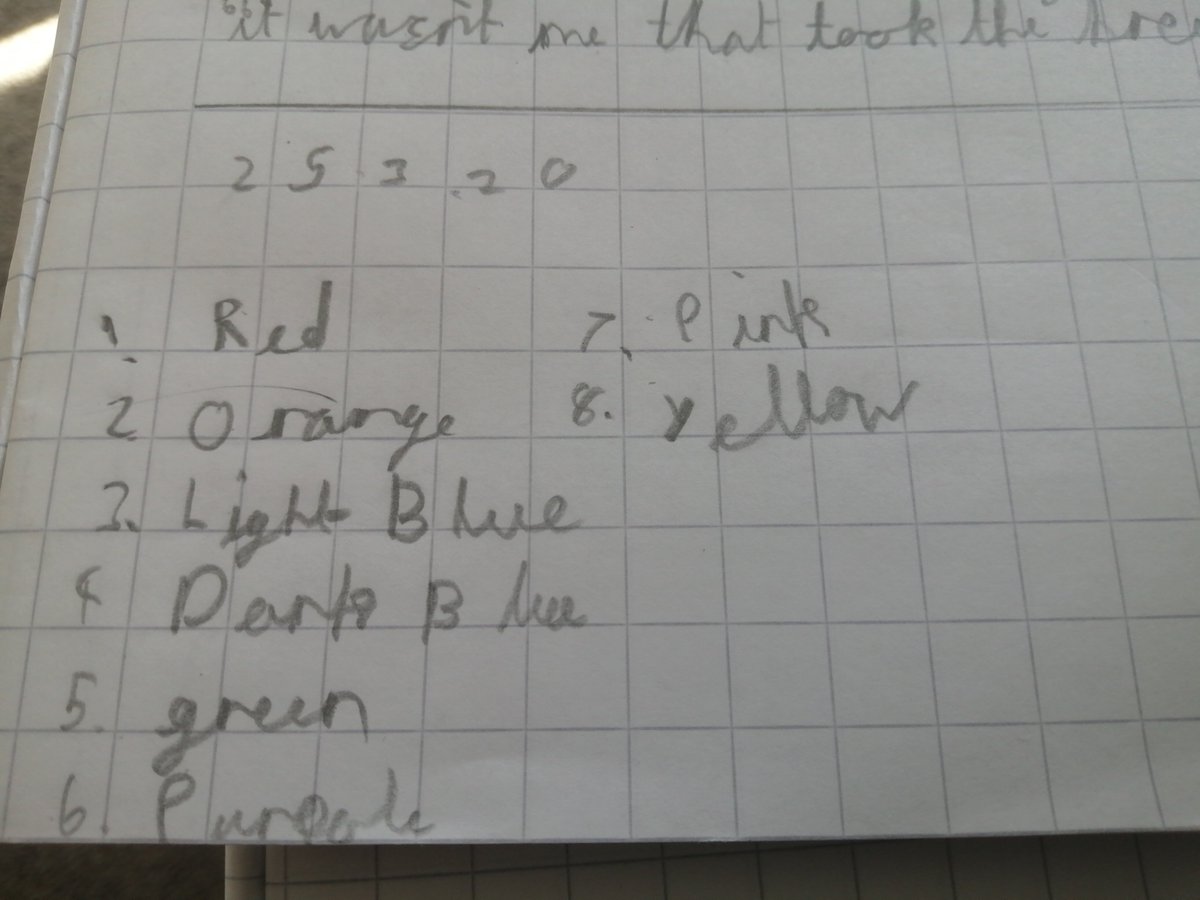 "it wasn't me that took the
2 5 3 2 0
1. Red
2. Orange
3. Light Blue
4 Dark Blue
5. green
6. Purpale
7. Pink
8. Yellow